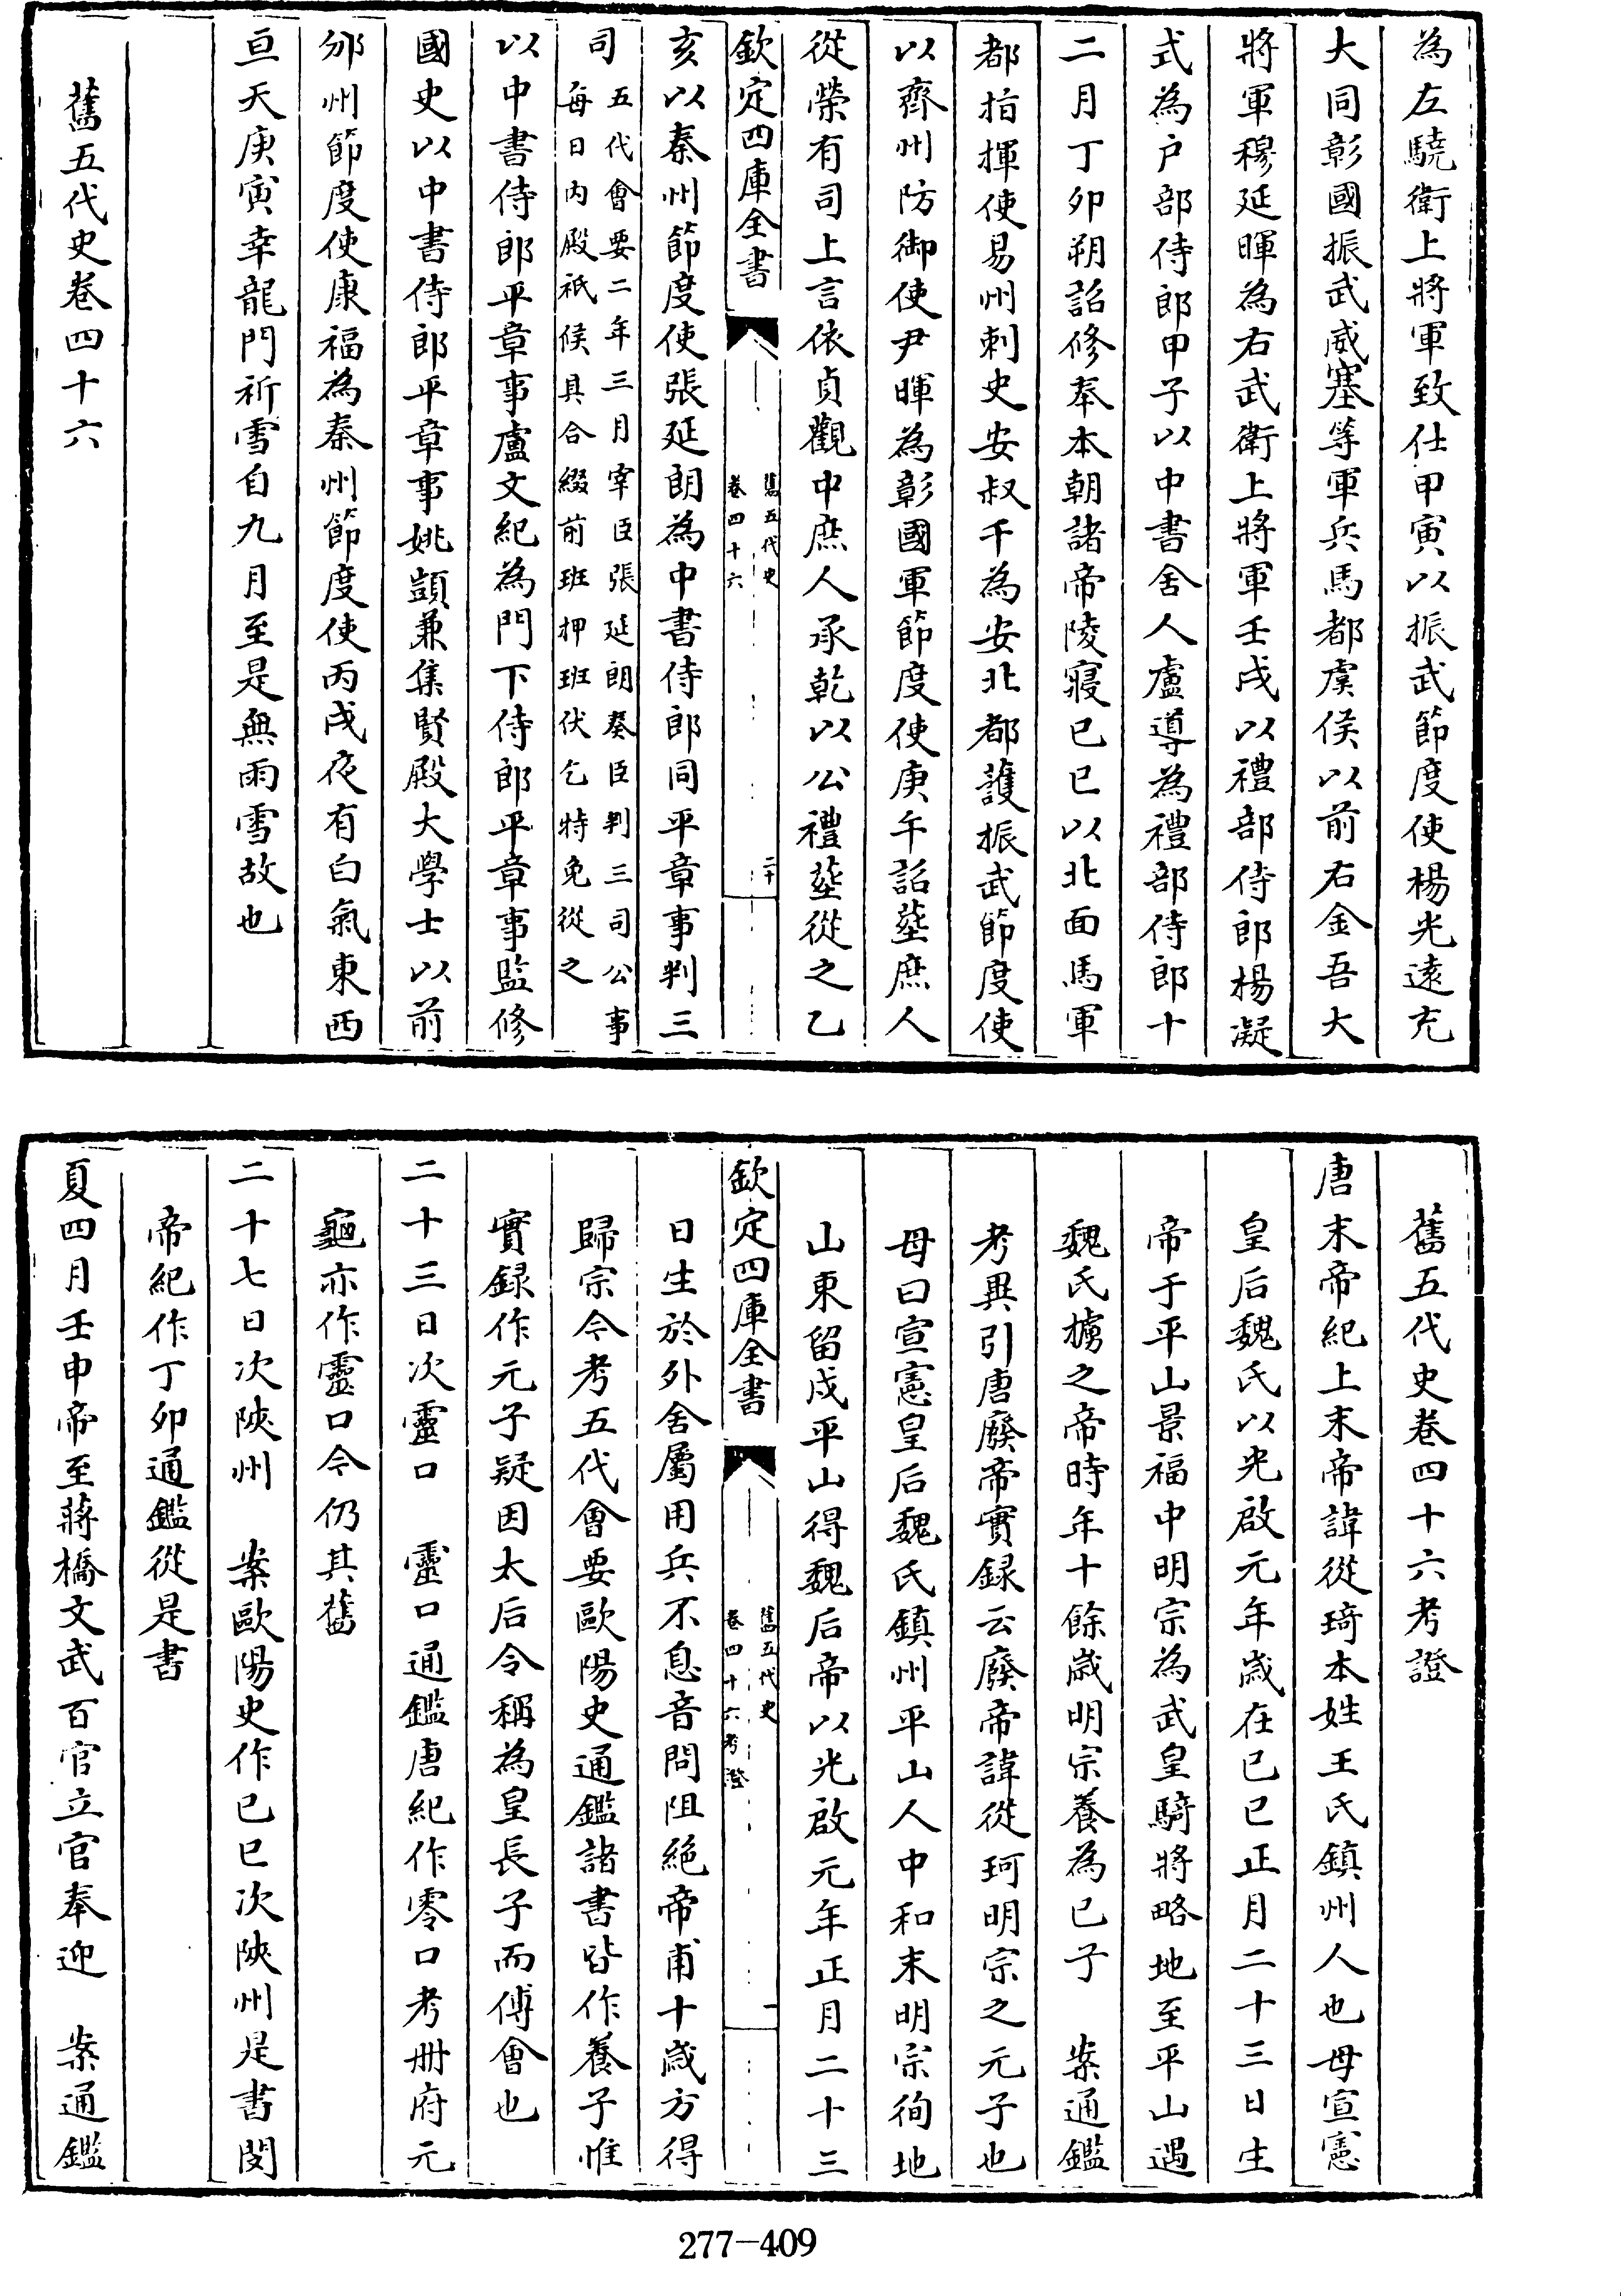 為左驍衛上將軍致仕甲寅以振武節度使楊光遠充
大同彰國振武威塞等軍兵馬都虞侯以前右金吾大
將軍穆延暉為右武衛上將軍壬戌以禮部侍郎楊凝
式為户部侍郎甲子以中書舍人盧導為禮部侍郎十
二月丁卯朔詔修奉本朝諸帝陵寢已已以北面馬軍
都指揮使易州刺史安叔千為安北都護振武節度使
以齊州防御使尹暉為彰國軍節度使庚午詔塟庶人
從榮有司上言依貞觀中庶人承乾以公禮塟從之乙
欽定四庫全書
舊五代史
卷四十六
二十
亥以秦州節度使張延朗為中書侍郎同平章事判三
司
五代會要二年三月宰臣張延朗奏臣判三司公事
每日内殿祇候其合綴前班押班伏乞特免從之
以中書侍郎平章事盧文紀為門下侍郎平章事監修
國史以中書侍郎平章事姚顗兼集賢殿大學士以前
邠州節度使康福為秦州節度使丙戌夜有白氣東西
亘天庚寅幸龍門祈雪自九月至是無雨雪故也
舊五代史卷四十六
舊五代史卷四十六考證
唐末帝紀上末帝諱從琦本姓王氏鎮州人也母宣憲
皇后魏氏以光啟元年歲在已已正月二十三日生
帝于平山景福中明宗為武皇騎將略地至平山遇
魏氏擄之帝時年十餘歲明宗養為已子　案通鑑
考異引唐廢帝實録云廢帝諱從珂明宗之元子也
母曰宣憲皇后魏氏鎮州平山人中和末明宗徇地
山東留戍平山得魏后帝以光啟元年正月二十三
欽定四庫全書
舊五代史
卷四十六考證
一
日生於外舍屬用兵不息音問阻絶帝甫十歲方得
歸宗今考五代會要歐陽史通鑑諸書皆作養子惟
實録作元子疑因太后令稱為皇長子而傅會也
二十三日次靈口　靈口通鑑唐紀作零口考冊府元
龜亦作靈口今仍其舊
二十七日次陝州　案歐陽史作已巳次陝州是書閔
帝紀作丁卯通鑑從是書
夏四月壬申帝至蔣橋文武百官立官奉迎　案通鑑
277-409